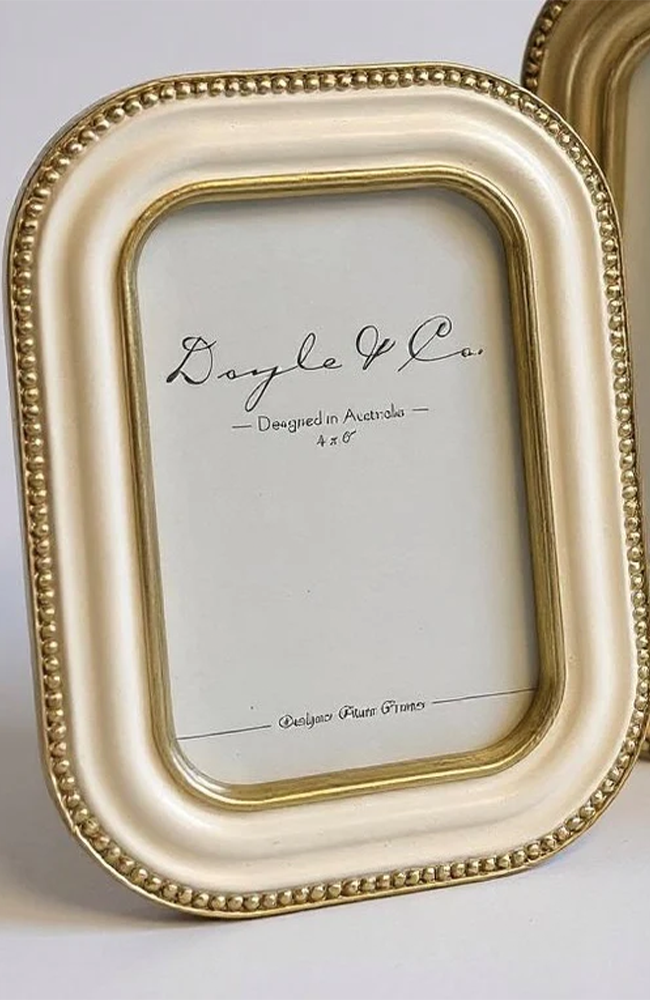 Doyle & Co.
— Designed in Australia —
4 x 6"
Designer Picture Frames